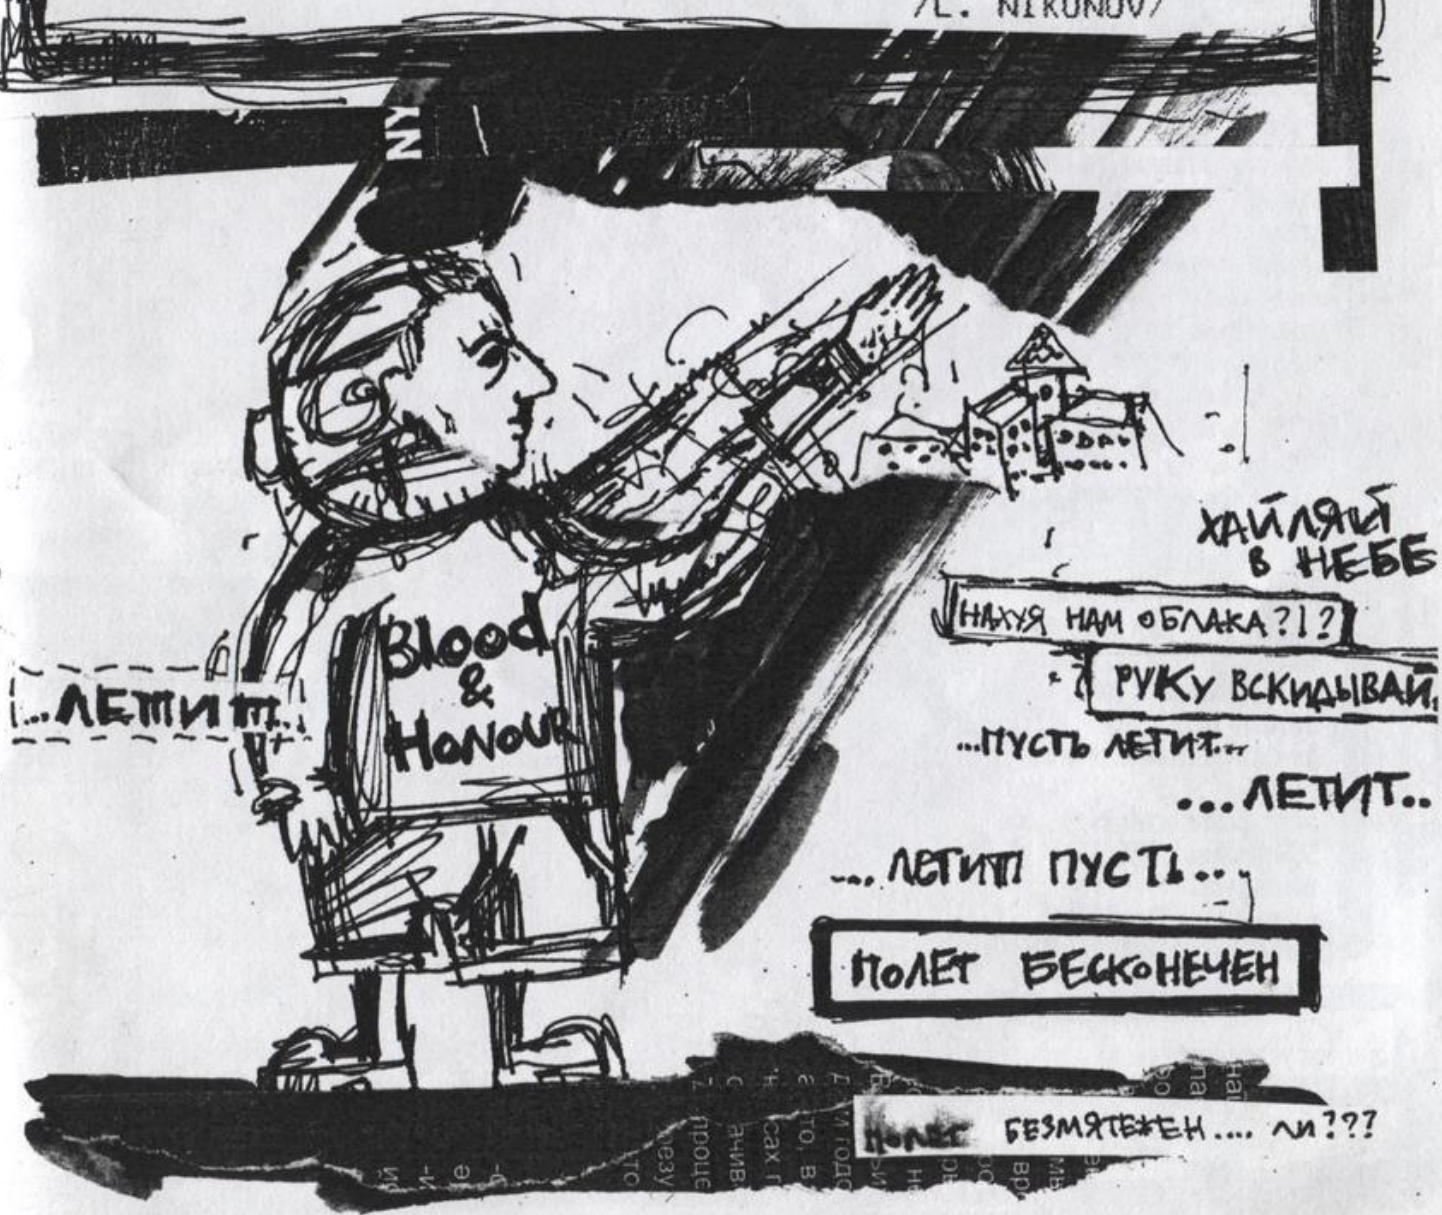 /L. NIKONOV/
NY
Blood
&
Honour
...ЛЕТИТ...
ХАЙЛЯЙ
В НЕБЕ
НАХУЯ НАМ ОБЛАКА?!?
РУКУ ВСКИДЫВАЙ
...ПУСТЬ ЛЕТИТ...
...ЛЕТИТ..
...ЛЕТИТ ПУСТЬ...
ПОЛЕТ БЕСКОНЕЧЕН
ПОЛЕТ БЕЗМЯТЕЖЕН.... ЛИ???